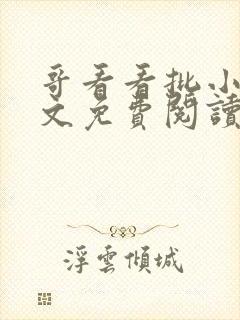 哥看看批小
文免費閱讀
浮雲傾城